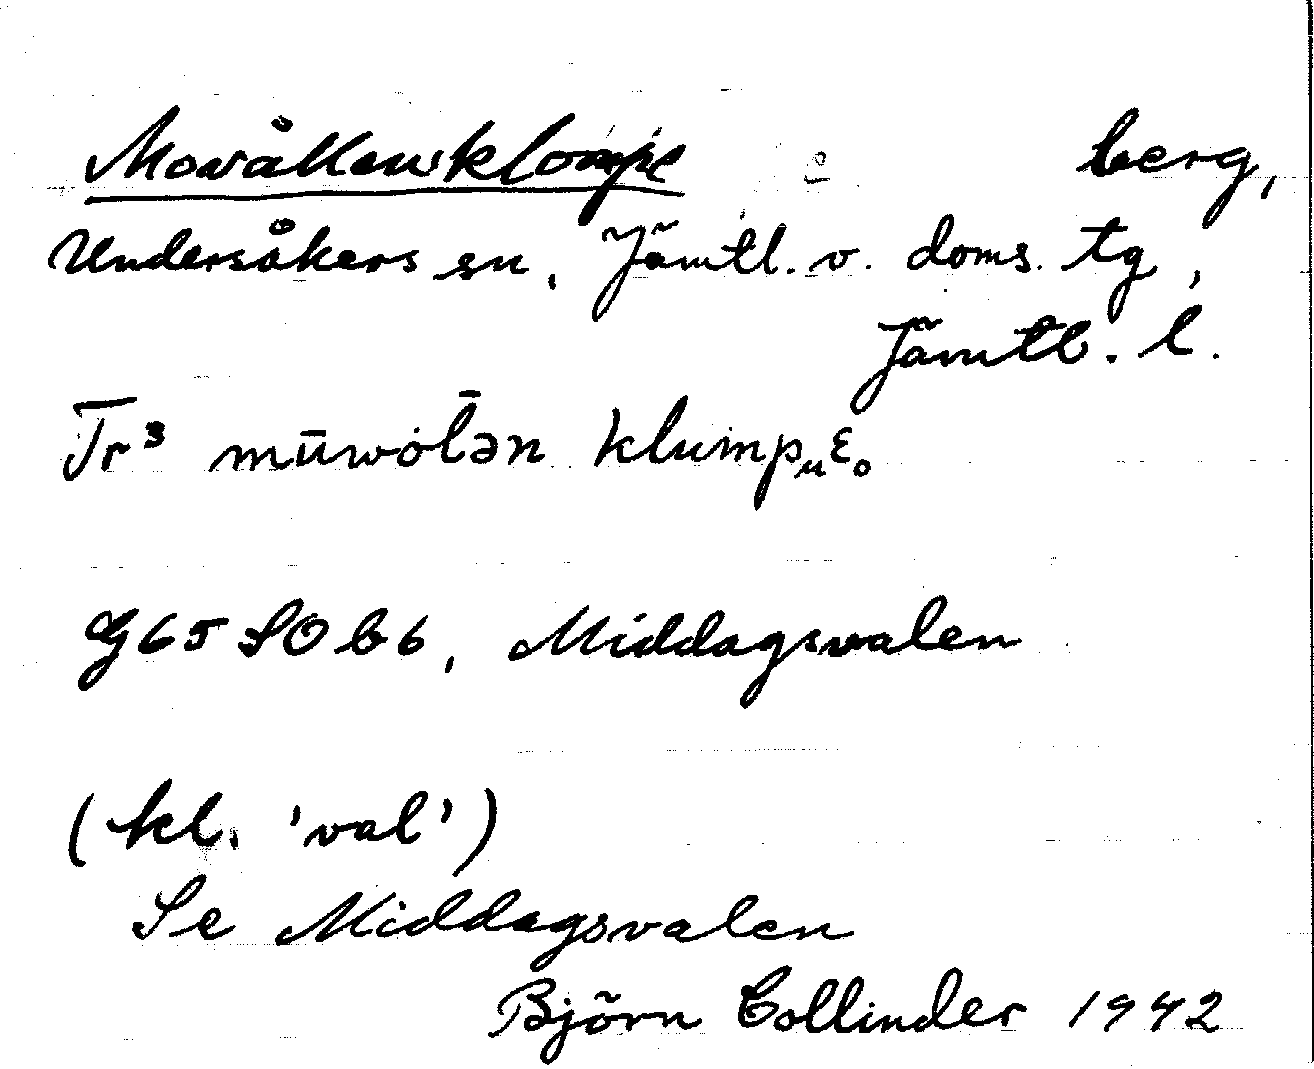 Movållenklompe berg,
Undersåkers sn, Jämtl. v. doms. tg,
Jämtl. l.
Tr³ mūwol̄ən klumpᵤɛ̥
G65 SO b6, Middagsvalen
(kl. 'val')
Se Middagsvalen
Björn Collinder 1942